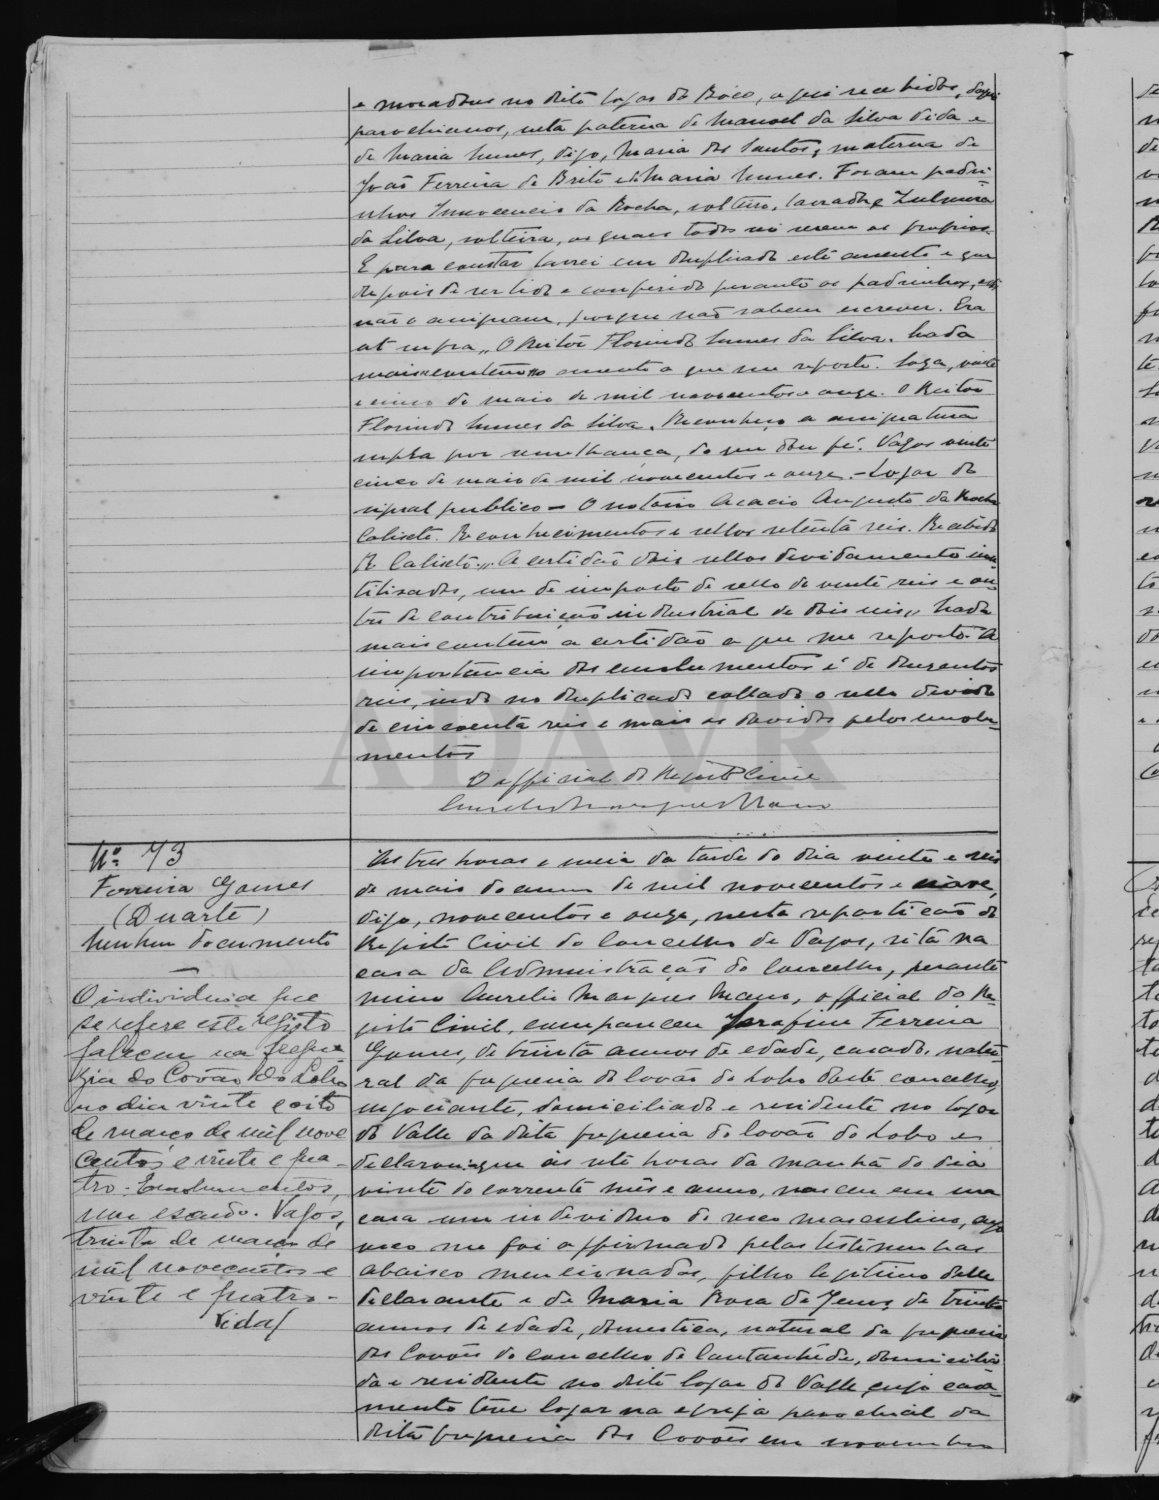 e moradores no dito logar da Bôco, aqui recebidos, d'aqui
parochianos, neta paterna de Manoel da Silva Vida e
de Maria Nunes, digo, Maria dos Santos; materna de
João Ferreira de Brito e de Maria Nunes. Foram padri-
nhos Innocencio da Rocha, solteiro, lavrador, e Zulmira
da Silva, solteira, os quaes todos sei serem os proprios.
E para constar lavrei em duplicado este assento e que
depois de ser lido e conferido perante os padrinhos,
não o assignam, porque não sabem escrever. Era
ut supra, O Reitor Florindo Nunes da Silva. Nada
mais continha o assento a que me reporto. Soza, vinte
e cinco de maio de mil novecentos e onze. O Reitor
Florindo Nunes da Silva. Reconheço a assignatura
supra por semelhança, do que dou fé. Vagos vinte
cinco de maio de mil novecentos e onze. - Logar do
signal publico - O notario Acacio Augusto da Rocha
Calisto. Reconhecimentos e sellos setenta reis. Recebido
R. Calisto. A certidão dois sellos devidamente inu-
tilisados, um de imposto de sello de vinte reis e ou-
tro de contribuição industrial de dois reis. Nada
mais contém a certidão a que me reporto. A
importancia dos emolumentos é de duzentos
reis, indo no duplicado collado o sello devido
de cincoenta reis e mais os devidos pelos emolu-
mentos
O official do Registo Civil
Aurelio Marques Mano
Nº 73
Ferreira Gomes
(Duarte)
Nenhum documento
O individuo a que
se refere este registo
faleceu na fregue-
zia do Covão do Lobo
no dia vinte e oito
de março de mil nove
centos e vinte e qua-
tro. Emolumentos,
um escudo. Vagos,
trinta de março de
mil novecentos e
vinte e quatro -
Vidal
Ás tres horas e meia da tarde do dia vinte e seis
de maio do anno de mil novecentos e nove,
digo, novecentos e onze, nesta repartição do
Registo Civil do Concelho de Vagos, sita na
casa da Administração do Concelho, perante
mim Aurelio Marques Mano, official do Re-
gisto Civil, compareceu Serafim Ferreira
Gomes, de trinta annos de edade, casado, natu-
ral da freguesia do Covão do Lobo deste concelho,
negociante, domiciliado e residente no logar
do Valle da dita freguesia do Covão do Lobo e
declarou que ás sete horas da manhã do dia
vinte do corrente mês e anno, nasceu em sua
casa um individuo do sexo masculino, cujo
sexo me foi affirmado pelas testimunhas
abaixo mencionadas, filho legitimo delle
declarante e de Maria Rosa de Jesus, de trinta
annos de edade, domestica, natural da freguesia
dos Covões do concelho de Cantanhêde, domicilia-
da e residente no dito logar do Valle, cujo casa-
mento teve logar na egreja parochial da
dita freguesia dos Covões em novembro
ADAVR